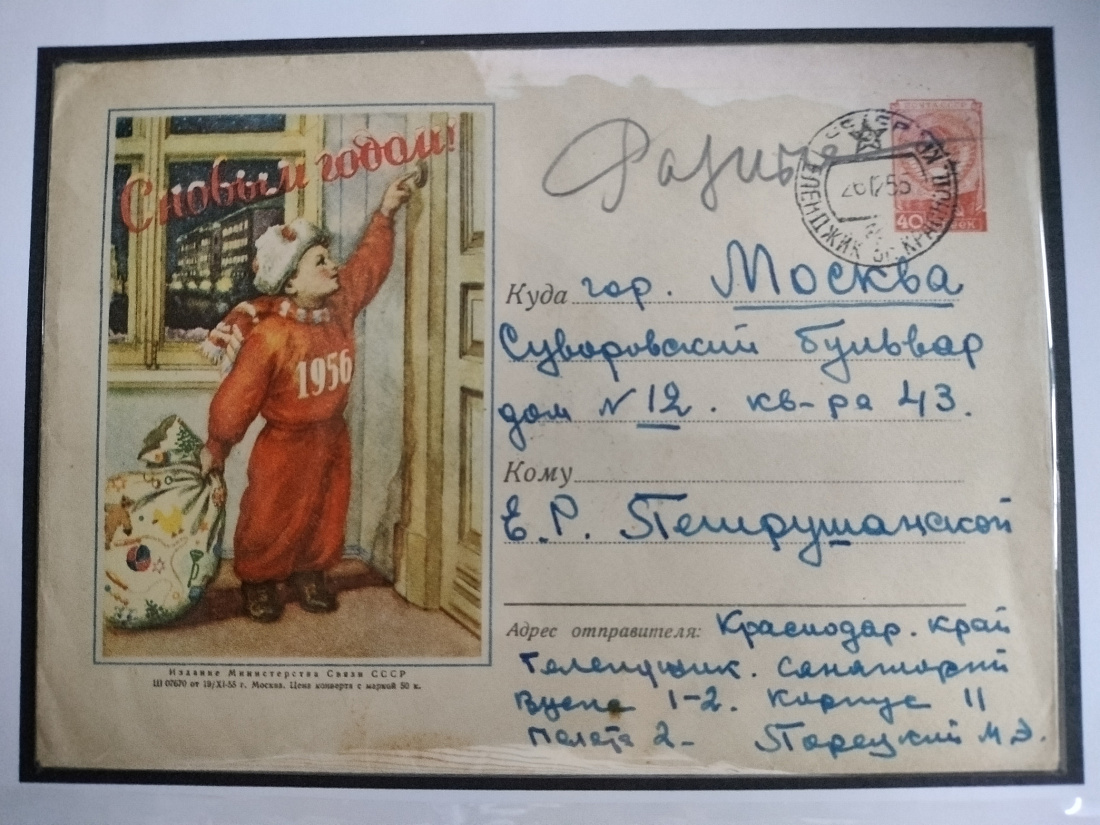 С новым годом!
1956
Издание Министерства Связи СССР
Ш 07670 от 19/XI-55 г. Москва. Цена конверта с маркой 50 к.
ПОЧТА СССР
40 КОПЕЕК
26 12 55
ГЕЛЕНДЖИК
Куда гор. Москва
Суворовский бульвар
дом N 12. кв-ра 43.
Кому
Е. Р. Петрушанской
Адрес отправителя: Краснодар. край
Геленджик. Санаторий
1-2. Корпус 11
Палата 2- М. Э.